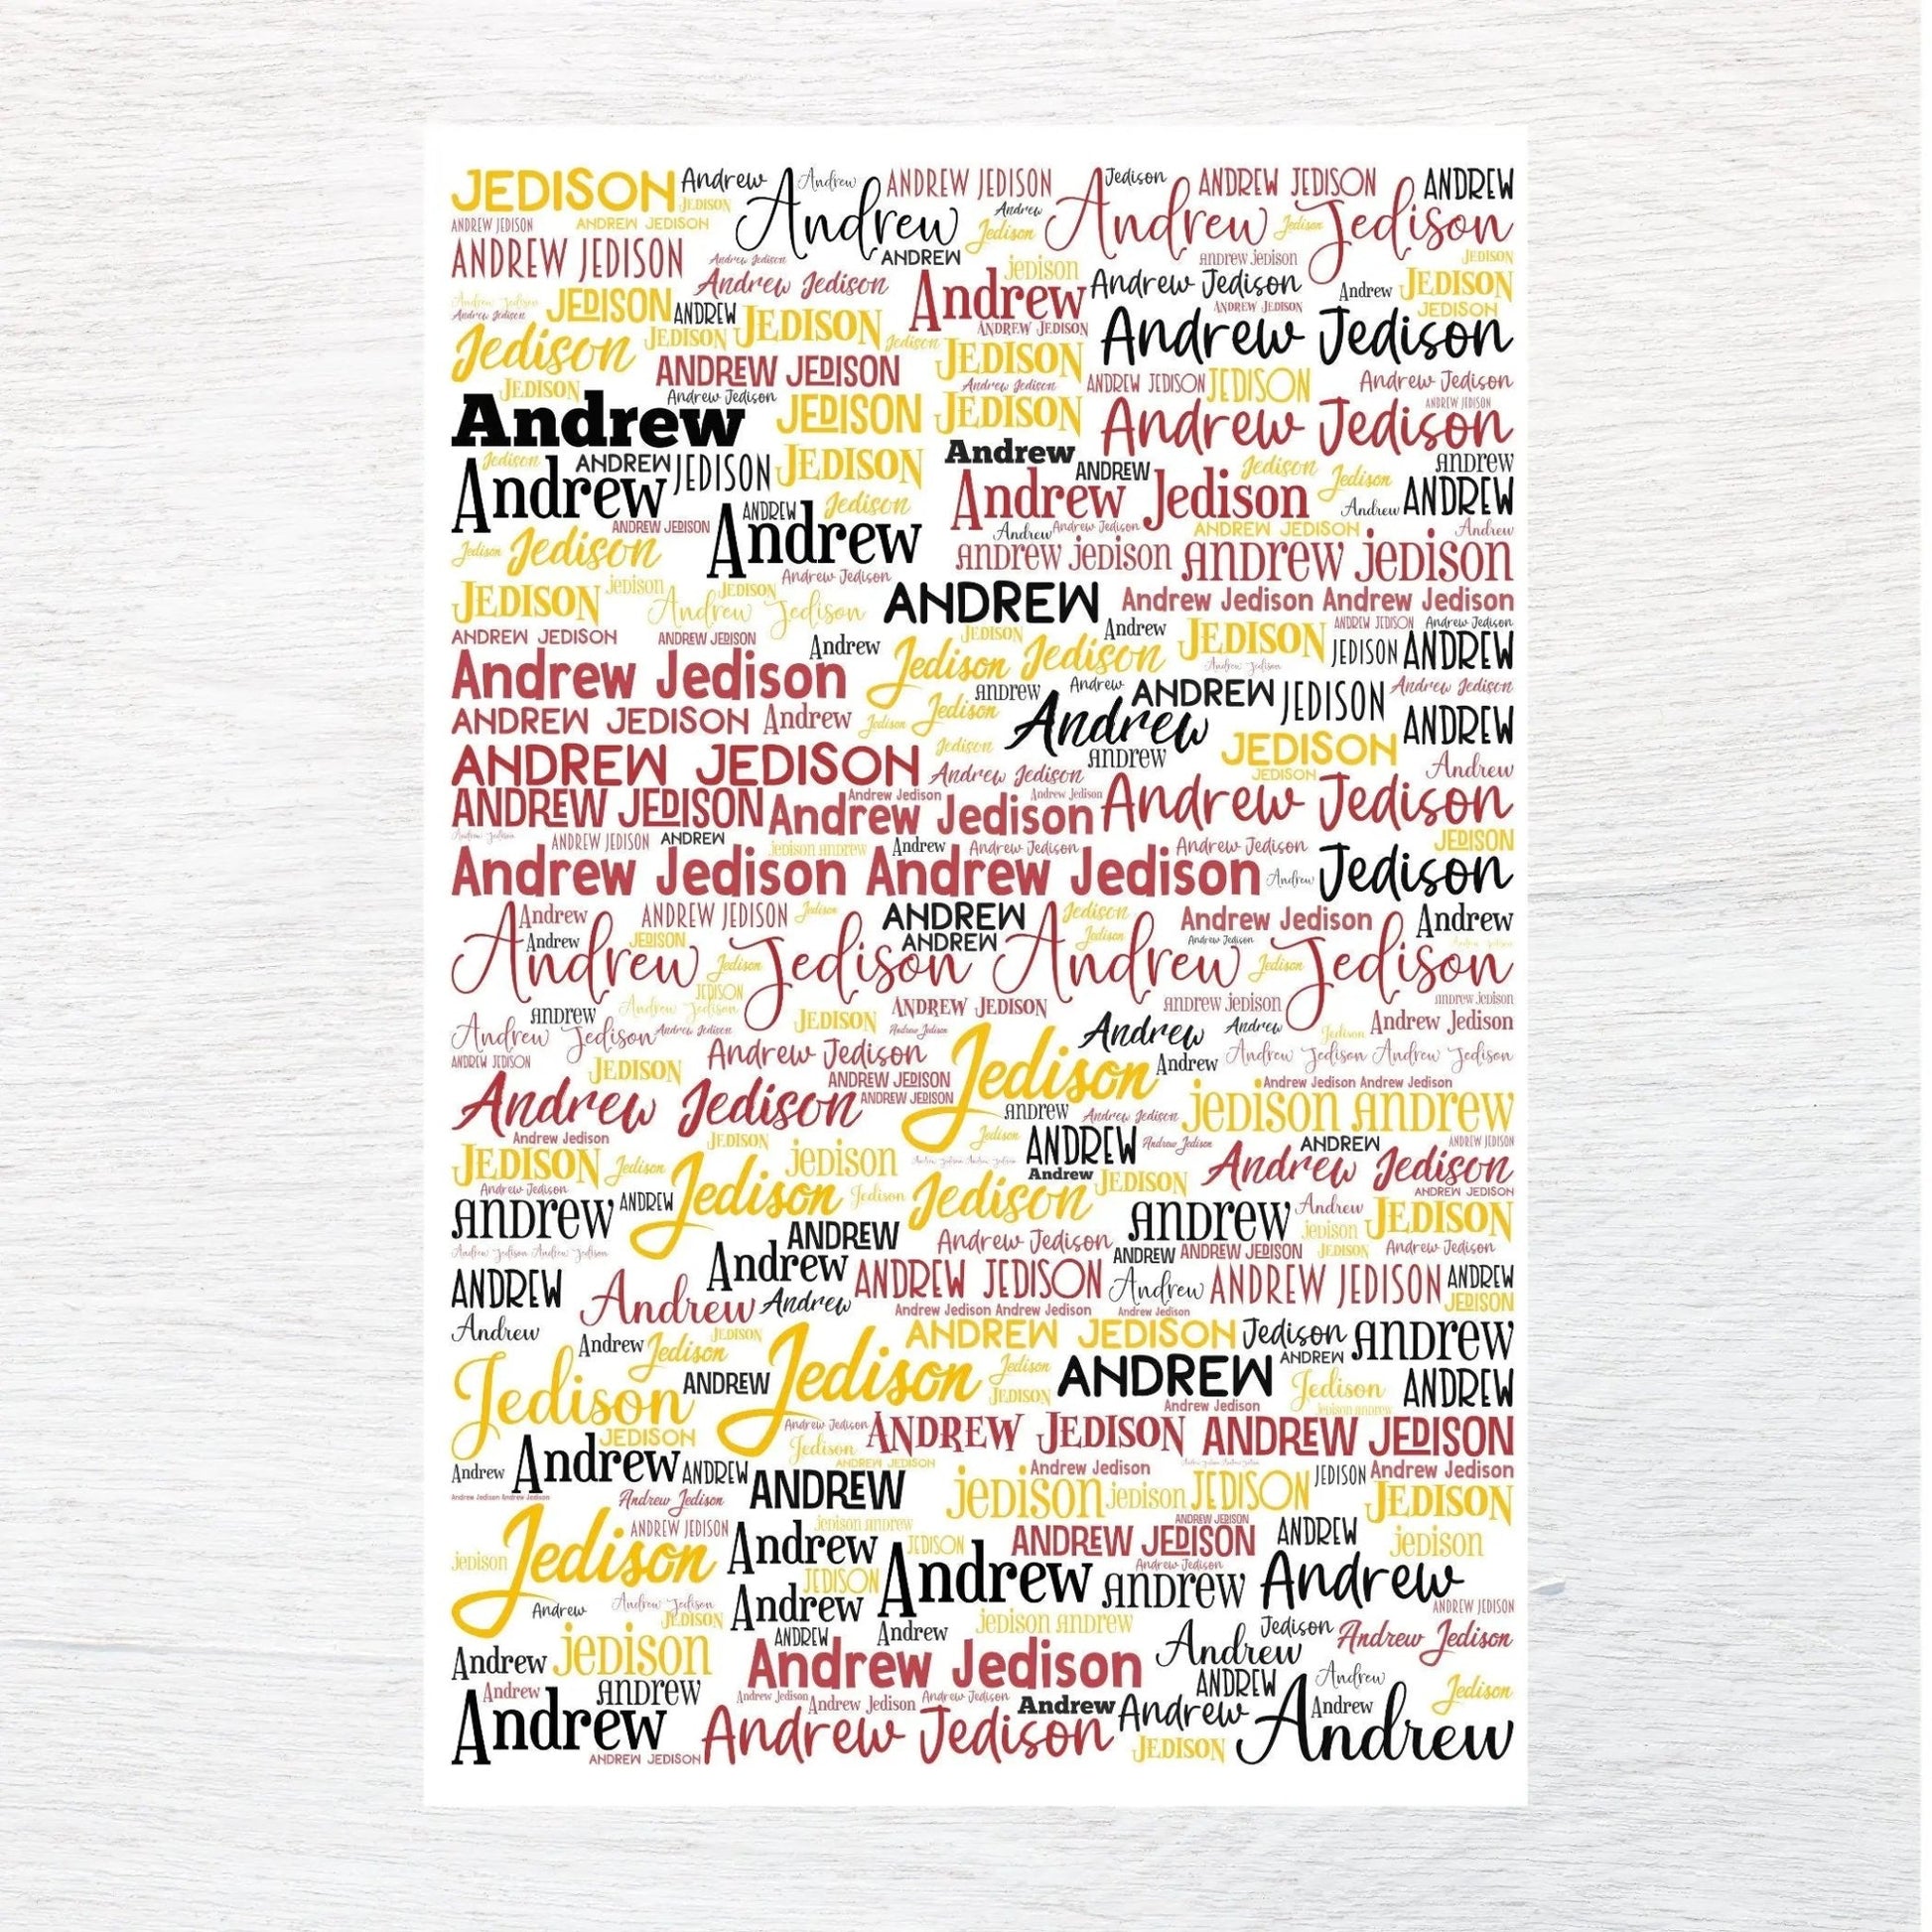 JEDISON Andrew Andrew ANDREW JEDISON Jedison ANDREW JEDISON ANDREW
JEDISON Andrew Andrew Andrew Jedison Jedison Jedison
ANDREW JEDISON ANDREW JEDISON
ANDREW JEDISON Andrew Jedison ANDREW JEDISON Andrew Jedison JEDISON
Andrew Jedison Andrew Andrew Jedison Andrew JEDISON
Andrew Jedison JEDISON ANDREW JEDISON ANDREW JEDISON ANDREW JEDISON JEDISON
Jedison JEDISON Jedison JEDISON Andrew Jedison
ANDREW JEDISON Andrew Jedison ANDREW JEDISON JEDISON Andrew Jedison
JEDISON Andrew Jedison ANDREW JEDISON
Andrew JEDISON JEDISON Andrew Jedison
Jedison ANDREW JEDISON JEDISON Andrew ANDREW Jedison Jedison Andrew
Andrew ANDREW Jedison Andrew Jedison Andrew ANDREW
ANDREW JEDISON Andrew Andrew Andrew Jedison ANDREW JEDISON Andrew
Jedison Jedison Andrew Jedison Andrew Jedison Andrew Jedison
JEDISON Jedison Andrew Jedison JEDISON ANDREW Andrew Jedison Andrew Jedison
ANDREW JEDISON ANDREW JEDISON Andrew JEDISON Andrew JEDISON ANDREW JEDISON Andrew Jedison
Andrew Jedison Jedison Jedison Andrew Jedison JEDISON ANDREW
Andrew Andrew ANDREW JEDISON Andrew Jedison
ANDREW JEDISON Andrew Jedison Jedison Andrew ANDREW
ANDREW JEDISON Jedison Andrew JEDISON
Andrew Jedison JEDISON Andrew
ANDREW JEDISON Andrew Jedison Andrew Jedison Andrew Jedison Andrew Jedison
ANDREW JEDISON ANDREW Jedison Andrew Andrew Andrew Jedison Andrew Jedison JEDISON
Andrew Jedison Andrew Jedison Andrew Jedison
Andrew ANDREW JEDISON Jedison ANDREW Jedison Andrew Jedison Andrew
Andrew JEDISON ANDREW Jedison Andrew Jedison
Andrew Jedison Jedison Andrew Jedison Jedison
JEDISON
Andrew Andrew Jedison ANDREW JEDISON Andrew Jedison Andrew Jedison
Andrew Jedison Andrew Jedison JEDISON Andrew Jedison Andrew Andrew Jedison Andrew Jedison
ANDREW JEDISON JEDISON Andrew Jedison Jedison Andrew Andrew Jedison Andrew Jedison
Andrew Jedison ANDREW JEDISON ANDREW JEDISON Andrew Jedison Andrew Jedison
Andrew Andrew Jedison Jedison Andrew
Andrew Jedison JEDISON Jedison Jedison ANDREW Andrew Jedison ANDREW ANDREW JEDISON
JEDISON Jedison Jedison Jedison Jedison Andrew JEDISON Andrew Jedison
Andrew Jedison ANDREW JEDISON
Andrew ANDREW ANDREW Andrew Jedison Andrew Andrew Jedison JEDISON
Andrew ANDREW ANDREW JEDISON JEDISON Andrew Jedison
ANDREW Andrew Andrew ANDREW JEDISON Andrew ANDREW JEDISON ANDREW
Andrew Jedison Andrew Jedison Andrew Jedison JEDISON
Andrew Andrew Jedison JEDISON Jedison ANDREW JEDISON Jedison Andrew
Jedison ANDREW Jedison JEDISON ANDREW ANDREW Jedison ANDREW
Andrew Jedison
JEDISON Andrew Jedison ANDREW JEDISON ANDREW JEDISON
Jedison ANDREW JEDISON
Andrew Andrew ANDREW ANDREW Andrew Jedison JEDISON Andrew Jedison
Andrew Jedison Jedison Jedison JEDISON JEDISON
Jedison ANDREW JEDISON Andrew Jedison Andrew JEDISON ANDREW JEDISON ANDREW JEDISON ANDREW Jedison
Jedison JEDISON Andrew Andrew Jedison Andrew Andrew
Andrew Andrew Jedison JEDISON Andrew Jedison Andrew ANDREW JEDISON
Andrew Jedison ANDREW Andrew Andrew Jedison Andrew Jedison Andrew Jedison
Andrew Andrew ANDREW Andrew Jedison
Andrew Andrew Jedison Andrew Jedison Andrew Jedison Andrew Andrew Andrew Andrew
ANDREW JEDISON Andrew Jedison JEDISON